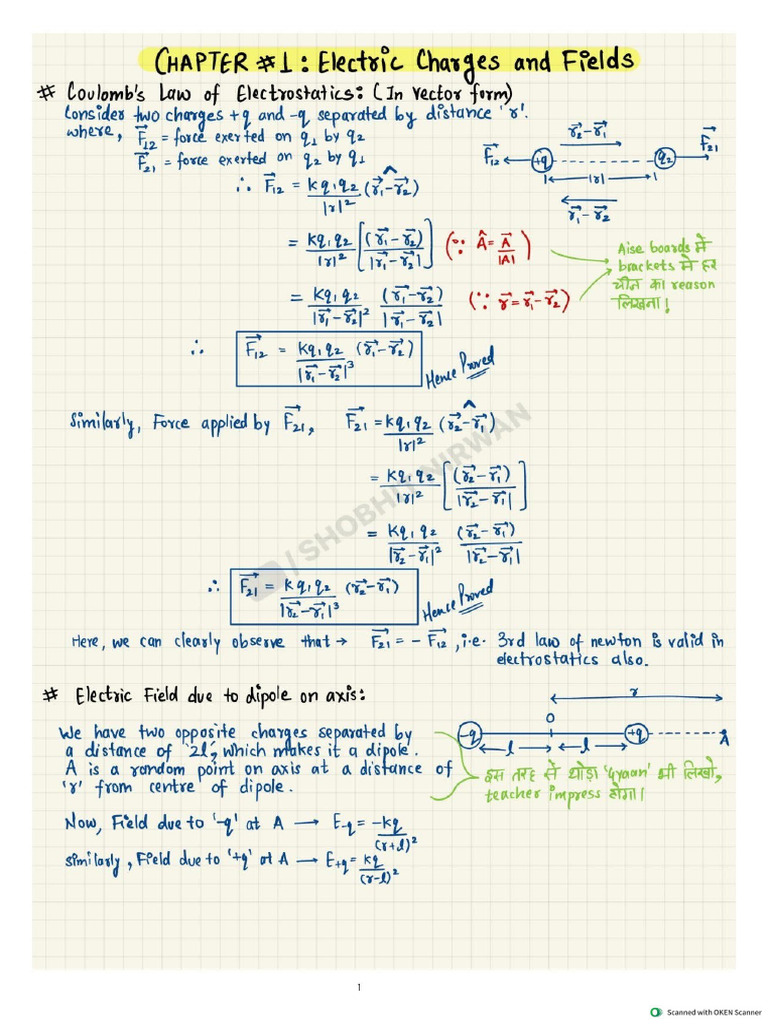 CHAPTER #1: Electric Charges and Fields
# Coulomb's Law of Electrostatics: (In vector form)
Consider two charges +q and -q separated by distance 'r'.
where, F⃗₁₂ = force exerted on q₁ by q₂
F⃗₂₁ = force exerted on q₂ by q₁
r⃗₂-r⃗₁
F⃗₁₂ +q q₂ F⃗₂₁
|r|
r⃗₁-r⃗₂
∴ F⃗₁₂ = Kq₁q₂/|r|² (r⃗₁-r⃗₂)^
= Kq₁q₂/|r|² [(r⃗₁-r⃗₂)/|r⃗₁-r⃗₂|] (∵ Â = A⃗/|A|)
Aise boards में
brackets मे हर
चीज का reason
लिखना!
= Kq₁q₂/|r⃗₁-r⃗₂|² (r⃗₁-r⃗₂)/|r⃗₁-r⃗₂| (∵ r⃗ = r⃗₁-r⃗₂)
∴ F⃗₁₂ = Kq₁q₂/|r⃗₁-r⃗₂|³ (r⃗₁-r⃗₂) Hence Proved
Similarly, Force applied by F⃗₂₁, F⃗₂₁ = Kq₁q₂/|r|² (r⃗₂-r⃗₁)^
= Kq₁q₂/|r|² [(r⃗₂-r⃗₁)/|r⃗₂-r⃗₁|]
= Kq₁q₂/|r⃗₂-r⃗₁|² (r⃗₂-r⃗₁)/|r⃗₂-r⃗₁|
∴ F⃗₂₁ = Kq₁q₂/|r⃗₂-r⃗₁|³ (r⃗₂-r⃗₁) Hence Proved
/ SHOBHIT NIRWAN
Here, we can clearly observe that → F⃗₂₁ = - F⃗₁₂, i.e. 3rd law of newton is valid in
electrostatics also.
# Electric Field due to dipole on axis:
r
O
-q +q A
l l
We have two opposite charges separated by
a distance of '2l', which makes it a dipole.
A is a random point on axis at a distance of
'r' from centre of dipole.
इस तरह से थोड़ा 'Gyaan' भी लिखो,
teacher impress होगा।
Now, Field due to '-q' at A → E-q = -kq/(r+l)²
similarly, Field due to '+q' at A → E+q = kq/(r-l)²
1
Scanned with OKEN Scanner